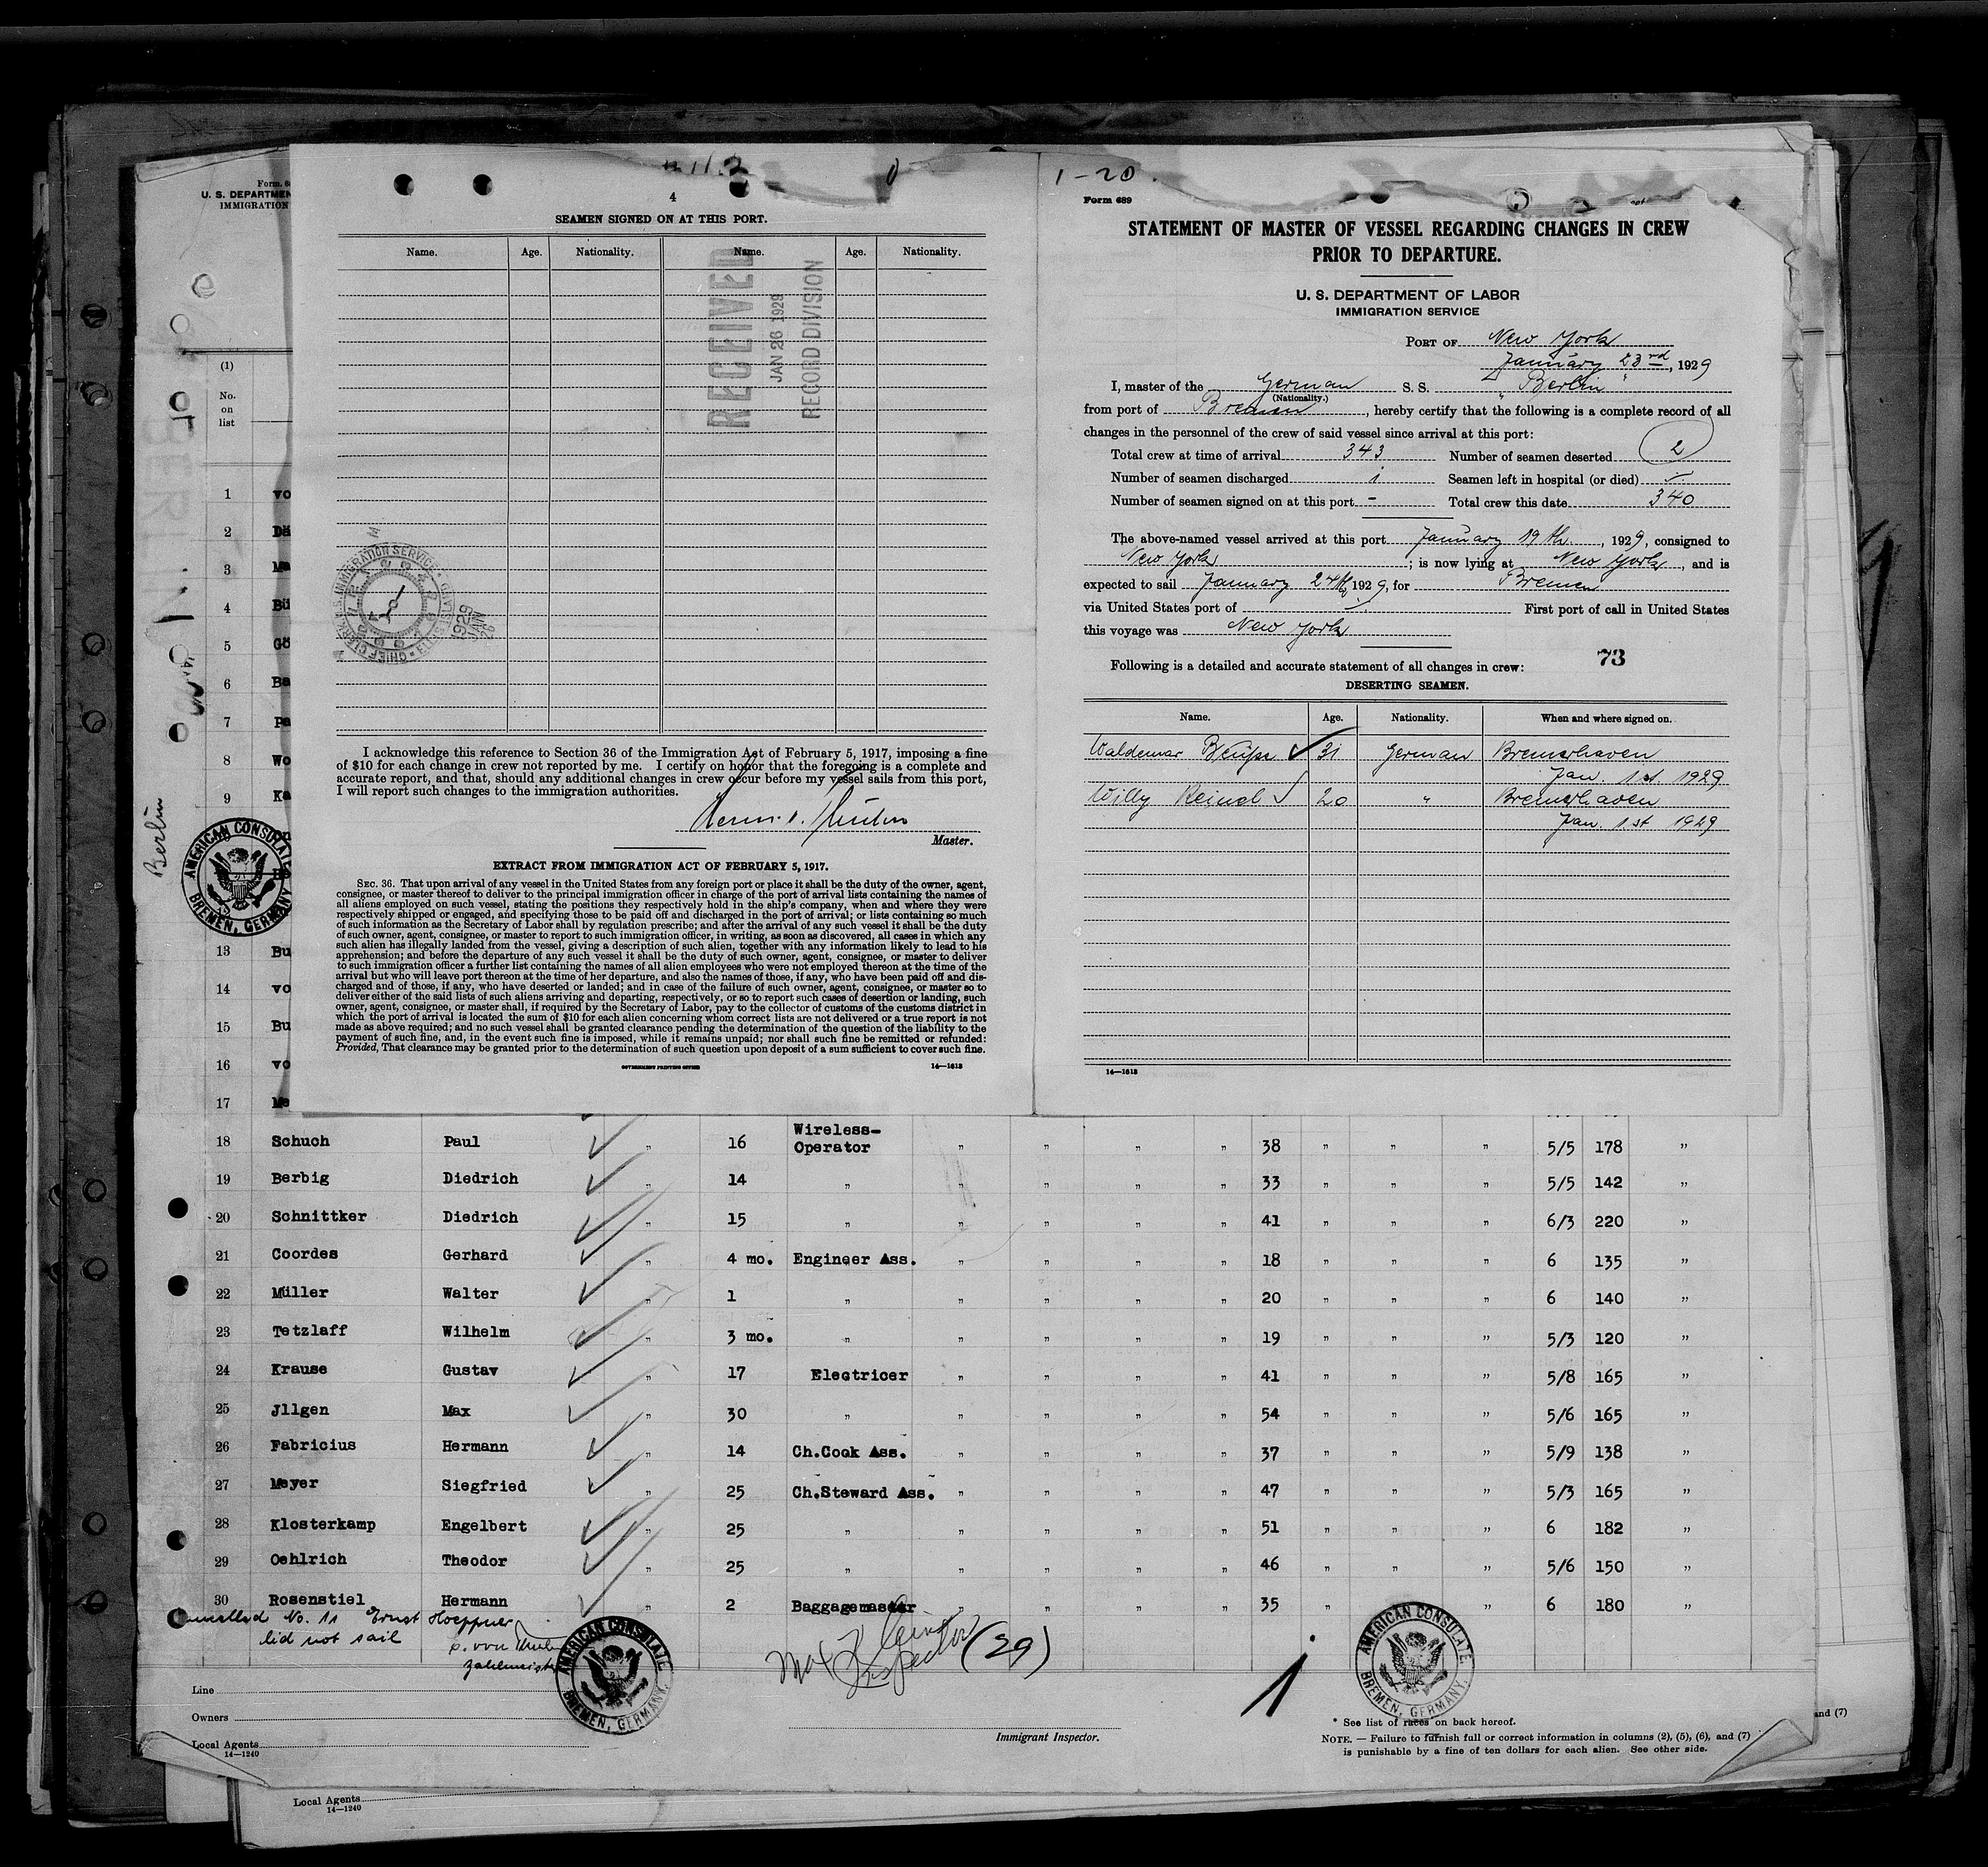 Form. 6
U. S. DEPARTMEN
IMMIGRATION
(1)
No.
on
list
BERLIN
Berlin
1 vo
2 Dä
3 Ma
4 Bü
5 Gö
6 Ba
7 Pa
8 Wo
9 Ka
13 Bu
14 vo
15 Bu
16 vo
17 Me
AMERICAN CONSULATE
BREMEN, GERMANY
4
SEAMEN SIGNED ON AT THIS PORT.
Name. Age. Nationality. Name. Age. Nationality.
RECEIVED
JAN 26 1929
RECORD DIVISION
I acknowledge this reference to Section 36 of the Immigration Act of February 5, 1917, imposing a fine
of $10 for each change in crew not reported by me. I certify on honor that the foregoing is a complete and
accurate report, and that, should any additional changes in crew occur before my vessel sails from this port,
I will report such changes to the immigration authorities.
Master.
EXTRACT FROM IMMIGRATION ACT OF FEBRUARY 5, 1917.
SEC. 36. That upon arrival of any vessel in the United States from any foreign port or place it shall be the duty of the owner, agent,
consignee, or master thereof to deliver to the principal immigration officer in charge of the port of arrival lists containing the names of
all aliens employed on such vessel, stating the positions they respectively hold in the ship's company, when and where they were
respectively shipped or engaged, and specifying those to be paid off and discharged in the port of arrival; or lists containing so much
of such information as the Secretary of Labor shall by regulation prescribe; and after the arrival of any such vessel it shall be the duty
of such owner, agent, consignee, or master to report to such immigration officer, in writing, as soon as discovered, all cases in which any
such alien has illegally landed from the vessel, giving a description of such alien, together with any information likely to lead to his
apprehension; and before the departure of any such vessel it shall be the duty of such owner, agent, consignee, or master to deliver
to such immigration officer a further list containing the names of all alien employees who were not employed thereon at the time of the
arrival but who will leave port thereon at the time of her departure, and also the names of those, if any, who have been paid off and dis-
charged and of those, if any, who have deserted or landed; and in case of the failure of such owner, agent, consignee, or master so to
deliver either of the said lists of such aliens arriving and departing, respectively, or so to report such cases of desertion or landing, such
owner, agent, consignee, or master shall, if required by the Secretary of Labor, pay to the collector of customs of the customs district in
which the port of arrival is located the sum of $10 for each alien concerning whom correct lists are not delivered or a true report is not
made as above required; and no such vessel shall be granted clearance pending the determination of the question of the liability to the
payment of such fine, and, in the event such fine is imposed, while it remains unpaid; nor shall such fine be remitted or refunded:
Provided, That clearance may be granted prior to the determination of such question upon deposit of a sum sufficient to cover such fine.
GOVERNMENT PRINTING OFFICE 14—1613
1-20
Form 689
STATEMENT OF MASTER OF VESSEL REGARDING CHANGES IN CREW
PRIOR TO DEPARTURE.
U. S. DEPARTMENT OF LABOR
IMMIGRATION SERVICE
PORT OF New York
January 23rd, 1929
I, master of the German S. S. "Berlin"
(Nationality.)
from port of Bremen, hereby certify that the following is a complete record of all
changes in the personnel of the crew of said vessel since arrival at this port:
Total crew at time of arrival 343 Number of seamen deserted 2
Number of seamen discharged 1 Seamen left in hospital (or died)
Number of seamen signed on at this port - Total crew this date 340
The above-named vessel arrived at this port January 19th, 1929, consigned to
New York; is now lying at New York, and is
expected to sail January 24th 1929, for Bremen
via United States port of First port of call in United States
this voyage was New York
73
Following is a detailed and accurate statement of all changes in crew:
DESERTING SEAMEN.
Name. Age. Nationality. When and where signed on.
Waldemar 31 German Bremerhaven
Jan. 1st. 1929
Willy Reinel 20 " Bremerhaven
Jan. 1st 1929
14—1613
18 Schuch Paul " 16 Wireless-
Operator " " " " 38 " " " 5/5 178 "
19 Berbig Diedrich " 14 " " " " " 33 " " " 5/5 142 "
20 Schnittker Diedrich " 15 " " " " " 41 " " " 6/3 220 "
21 Coordes Gerhard " 4 mo. Engineer Ass. " " " " 18 " " " 6 135 "
22 Müller Walter " 1 " " " " " 20 " " " 6 140 "
23 Tetzlaff Wilhelm " 3 mo. " " " " " 19 " " " 5/3 120 "
24 Krause Gustav " 17 Electricer " " " " 41 " " " 5/8 165 "
25 Jllgen Max " 30 " " " " " 54 " " " 5/6 165 "
26 Fabricius Hermann " 14 Ch.Cook Ass. " " " " 37 " " " 5/9 138 "
27 Meyer Siegfried " 25 Ch.Steward Ass. " " " " 47 " " " 5/3 165 "
28 Klosterkamp Engelbert " 25 " " " " " 51 " " " 6 182 "
29 Oehlrich Theodor " 25 " " " " " 46 " " " 5/6 150 "
30 Rosenstiel Hermann " 2 Baggagemaster " " " " 35 " " 6 180 "
No. 11 Ernst Hoeppner
did not sail
Inspector (29)
1
AMERICAN CONSULATE
BREMEN, GERMANY.
AMERICAN CONSULATE
BREMEN, GERMANY.
Line
Owners
Local Agents
14—1240
Immigrant Inspector.
* See list of races on back hereof.
NOTE. — Failure to furnish full or correct information in columns (2), (5), (6), and (7)
is punishable by a fine of ten dollars for each alien. See other side.
and (7)
Local Agents
14—1240